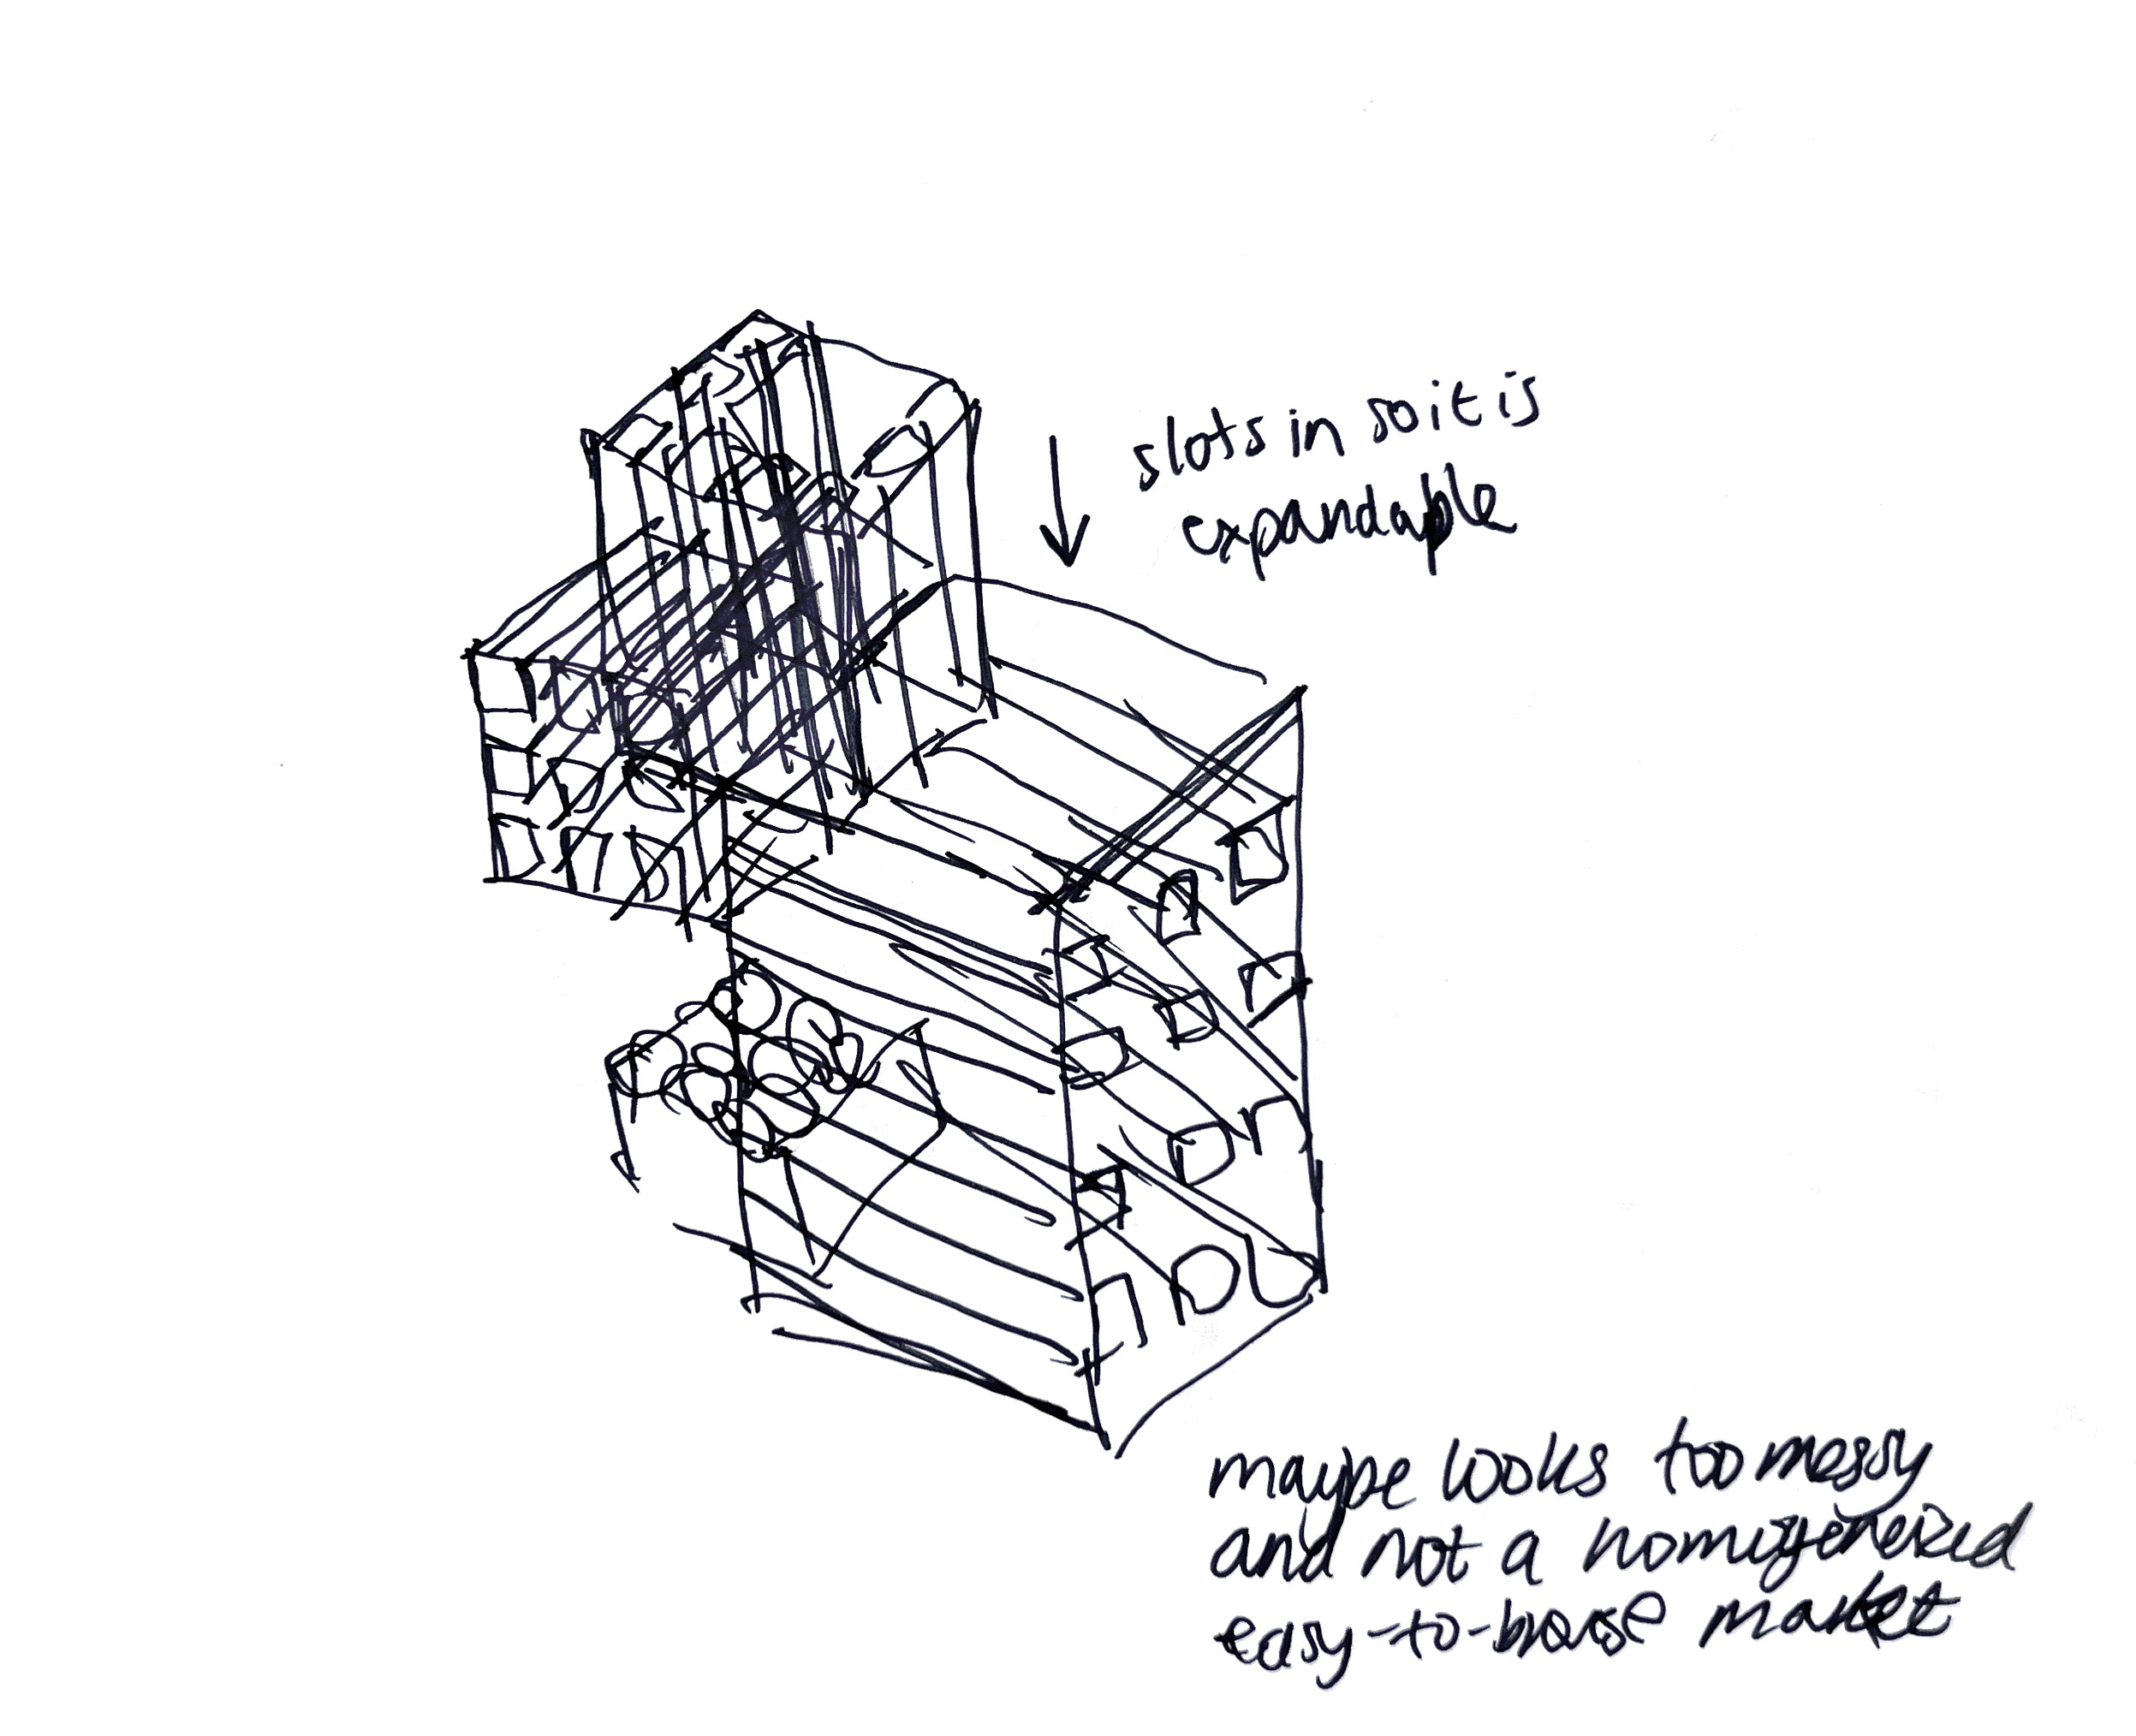 slots in so it is
expandable
maybe looks too messy
and not a homogeneized
easy-to-browse market